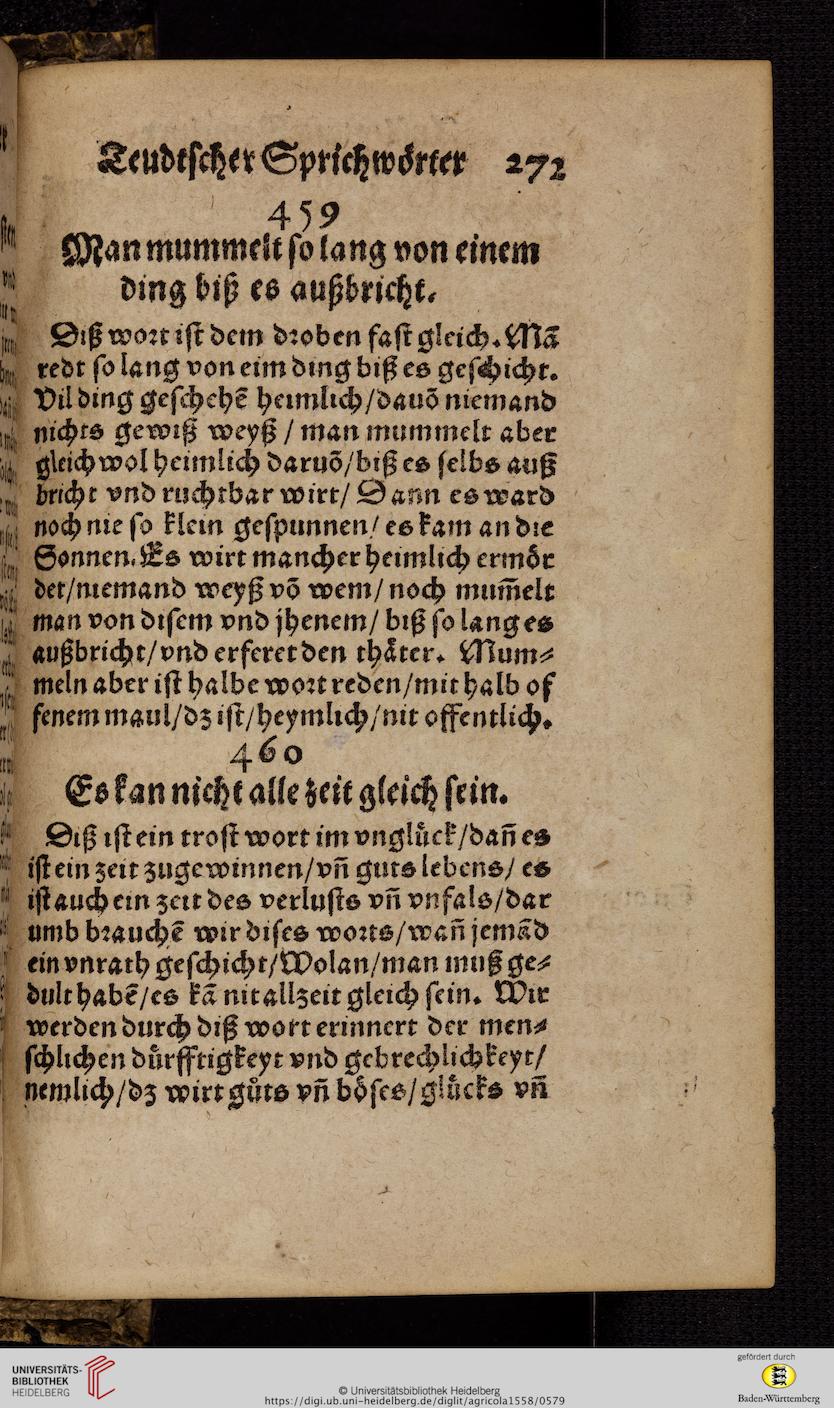 Teudtscher Sprichwörter 272
459
Man mummelt so lang von einem
ding biß es außbricht.
Diß wort ist dem droben fast gleich. Mā
redt so lang von eim ding biß es geschicht.
Vil ding geschehē heimlich/dauō niemand
nichts gewiß weyß / man mummelt aber
gleichwol heimlich daruō/biß es selbs auß
bricht vnd ruchtbar wirt/ Dann es ward
noch nie so klein gespunnen/ es kam an die
Sonnen. Es wirt mancher heimlich ermör
det/niemand weyß vō wem/ noch mum̄elt
man von disem vnd jhenem/ biß so lang es
außbricht/vnd erferet den thäter. Mum⸗
meln aber ist halbe wort reden/mit halb of
fenem maul/dz ist/heymlich/nit offentlich.
460
Es kan nicht alle zeit gleich sein.
Diß ist ein trost wort im vnglück/dañ es
ist ein zeit zugewinnen/vñ guts lebens/ es
ist auch ein zeit des verlusts vñ vnfals/dar
umb brauchē wir dises worts/wañ jemād
ein vnrath geschicht/Wolan/man muß ge⸗
dult habē/es kā nit allzeit gleich sein. Wir
werden durch diß wort erinnert der men⸗
schlichen dürfftigkeyt vnd gebrechlichkeyt/
nemlich/dz wirt gůts vñ böses/glücks vñ
UNIVERSITÄTS-
BIBLIOTHEK
HEIDELBERG
© Universitätsbibliothek Heidelberg
https://digi.ub.uni-heidelberg.de/diglit/agricola1558/0579
gefördert durch
Baden-Württemberg